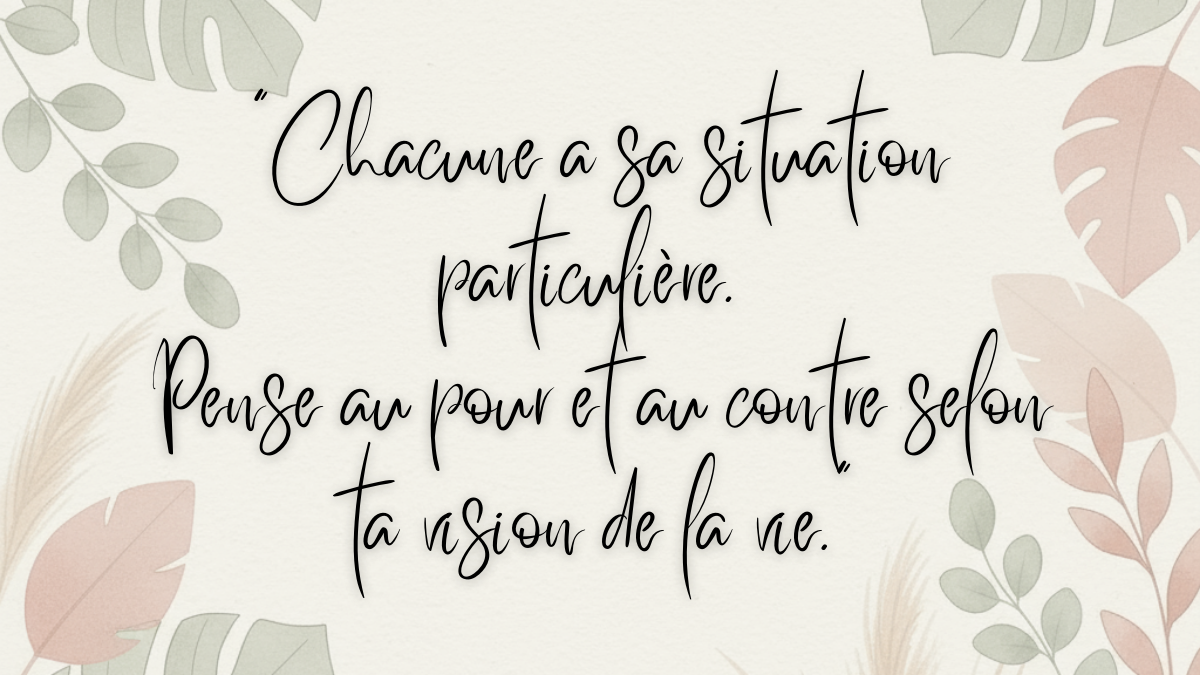 "Chacune a sa situation
particulière.
Pense au pour et au contre selon
ta vision de la vie."